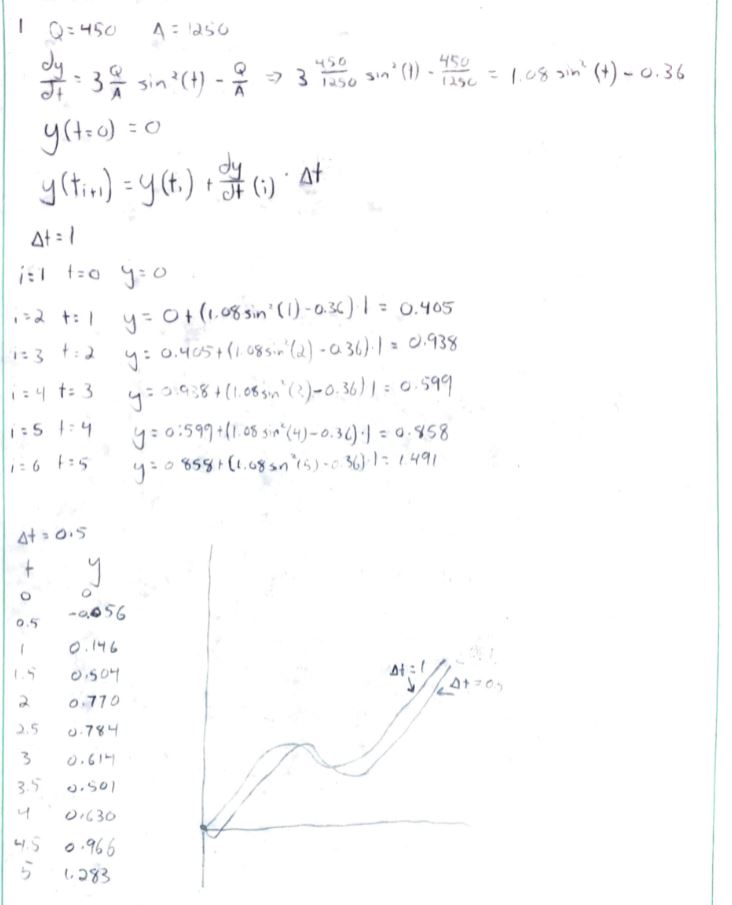 1 Q=450 A=1250
dy/dt = 3 Q/A sin²(t) - Q/A ⇒ 3 450/1250 sin²(t) - 450/1250 = 1.08 sin²(t) - 0.36
y(t=0) = 0
y(tᵢ₊₁) = y(tᵢ) + dy/dt (i) · Δt
Δt=1
i=1 t=0 y=0
i=2 t=1 y= 0+(1.08 sin²(1)-0.36)·1 = 0.405
i=3 t=2 y= 0.405+(1.08 sin²(2)-0.36)·1 = 0.938
i=4 t=3 y=0.938+(1.08 sin²(3)-0.36)1 = 0.599
i=5 t=4 y=0.599+(1.08 sin²(4)-0.36)·1 = 0.858
i=6 t=5 y=0.858+(1.08 sin²(5)-0.36)·1= 1.491
Δt=0.5
t y
0 0
0.5 -0.056
1 0.146
1.5 0.504
2 0.770
2.5 0.784
3 0.614
3.5 0.501
4 0.630
4.5 0.966
5 1.283
Δt=1
Δt=0.5